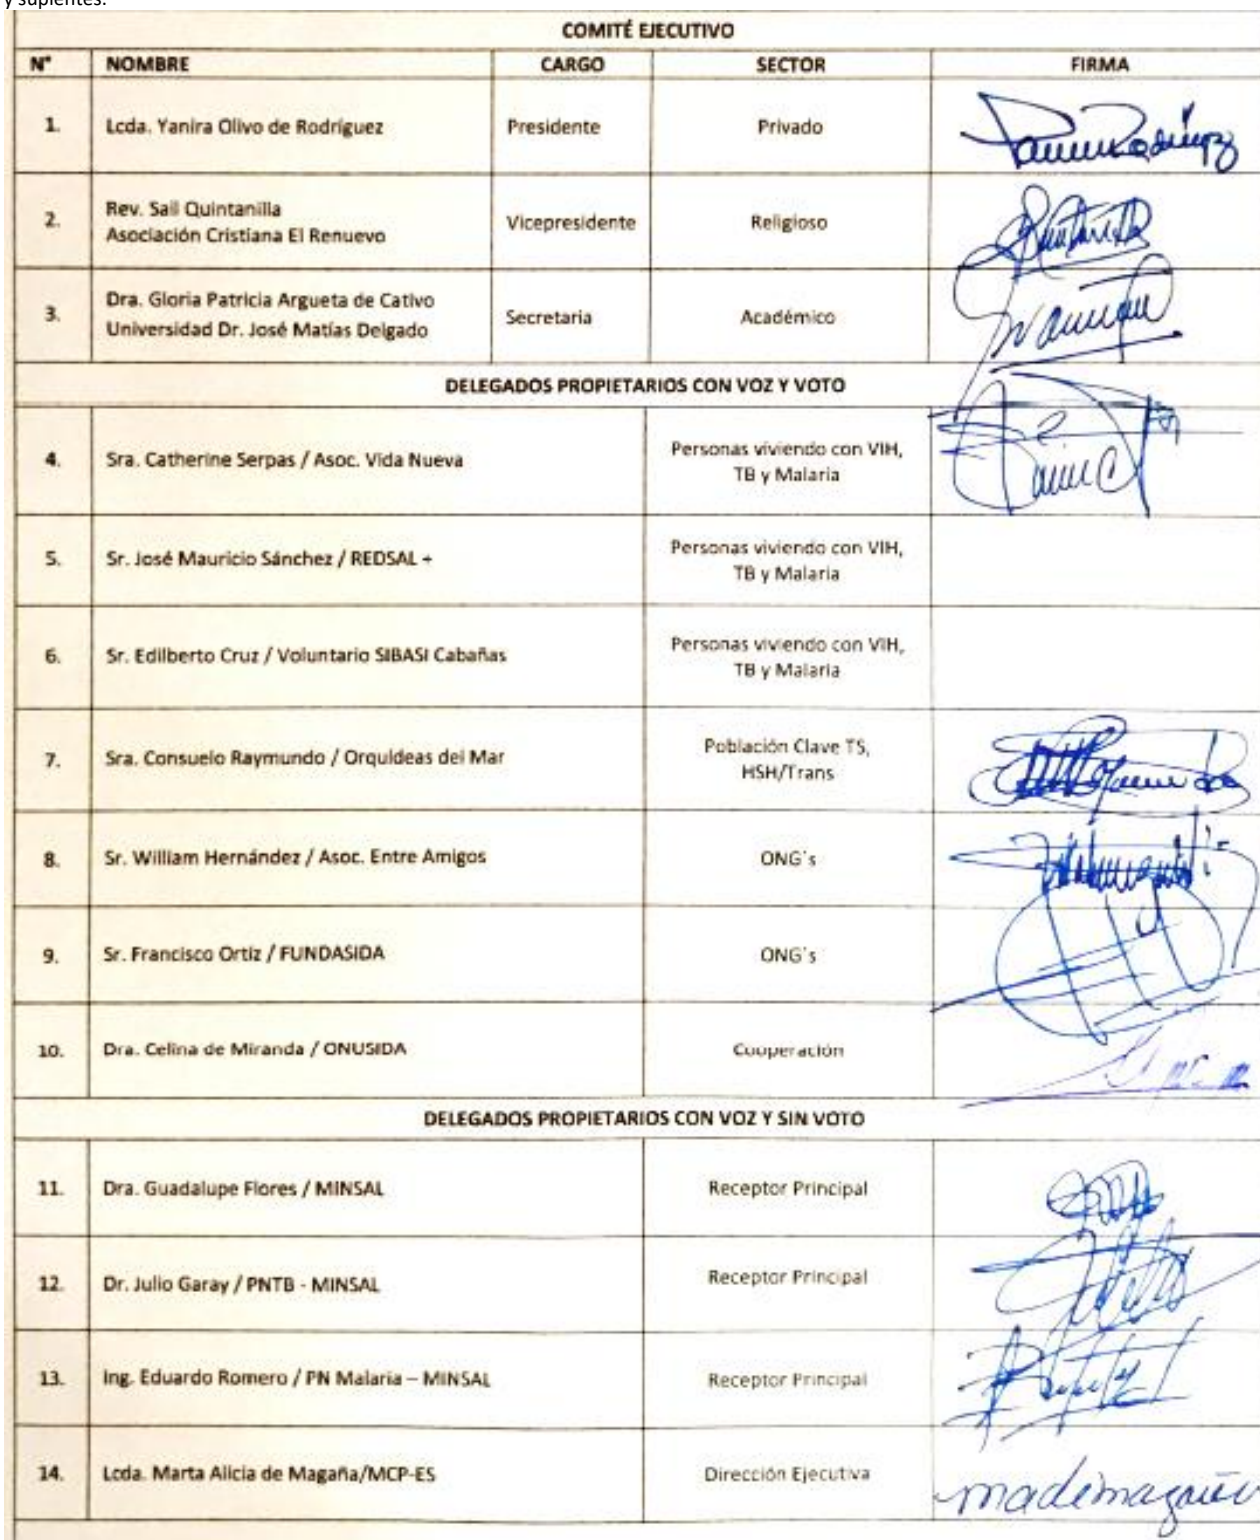 y suplentes.
COMITÉ EJECUTIVO
N° NOMBRE CARGO SECTOR FIRMA
1. Lcda. Yanira Olivo de Rodríguez Presidente Privado
2. Rev. Sail Quintanilla
Asociación Cristiana El Renuevo Vicepresidente Religioso
3. Dra. Gloria Patricia Argueta de Cativo
Universidad Dr. José Matías Delgado Secretaria Académico
DELEGADOS PROPIETARIOS CON VOZ Y VOTO
4. Sra. Catherine Serpas / Asoc. Vida Nueva Personas viviendo con VIH,
TB y Malaria
5. Sr. José Mauricio Sánchez / REDSAL + Personas viviendo con VIH,
TB y Malaria
6. Sr. Edilberto Cruz / Voluntario SIBASI Cabañas Personas viviendo con VIH,
TB y Malaria
7. Sra. Consuelo Raymundo / Orquídeas del Mar Población Clave TS,
HSH/Trans
8. Sr. William Hernández / Asoc. Entre Amigos ONG´s
9. Sr. Francisco Ortiz / FUNDASIDA ONG´s
10. Dra. Celina de Miranda / ONUSIDA Cooperación
DELEGADOS PROPIETARIOS CON VOZ Y SIN VOTO
11. Dra. Guadalupe Flores / MINSAL Receptor Principal
12. Dr. Julio Garay / PNTB - MINSAL Receptor Principal
13. Ing. Eduardo Romero / PN Malaria – MINSAL Receptor Principal
14. Lcda. Marta Alicia de Magaña/MCP-ES Dirección Ejecutiva